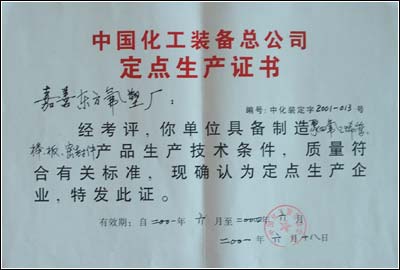 中国化工装备总公司
定点生产证书
嘉善东方氟塑厂：
编号：中化装定字2001-013号
经考评，你单位具备制造聚四氟乙烯管、
棒、板、密封件产品生产技术条件，质量符
合有关标准，现确认为定点生产企
业，特发此证。
有效期：自二00一年六月至二00四年六月
二00一年六月十八日